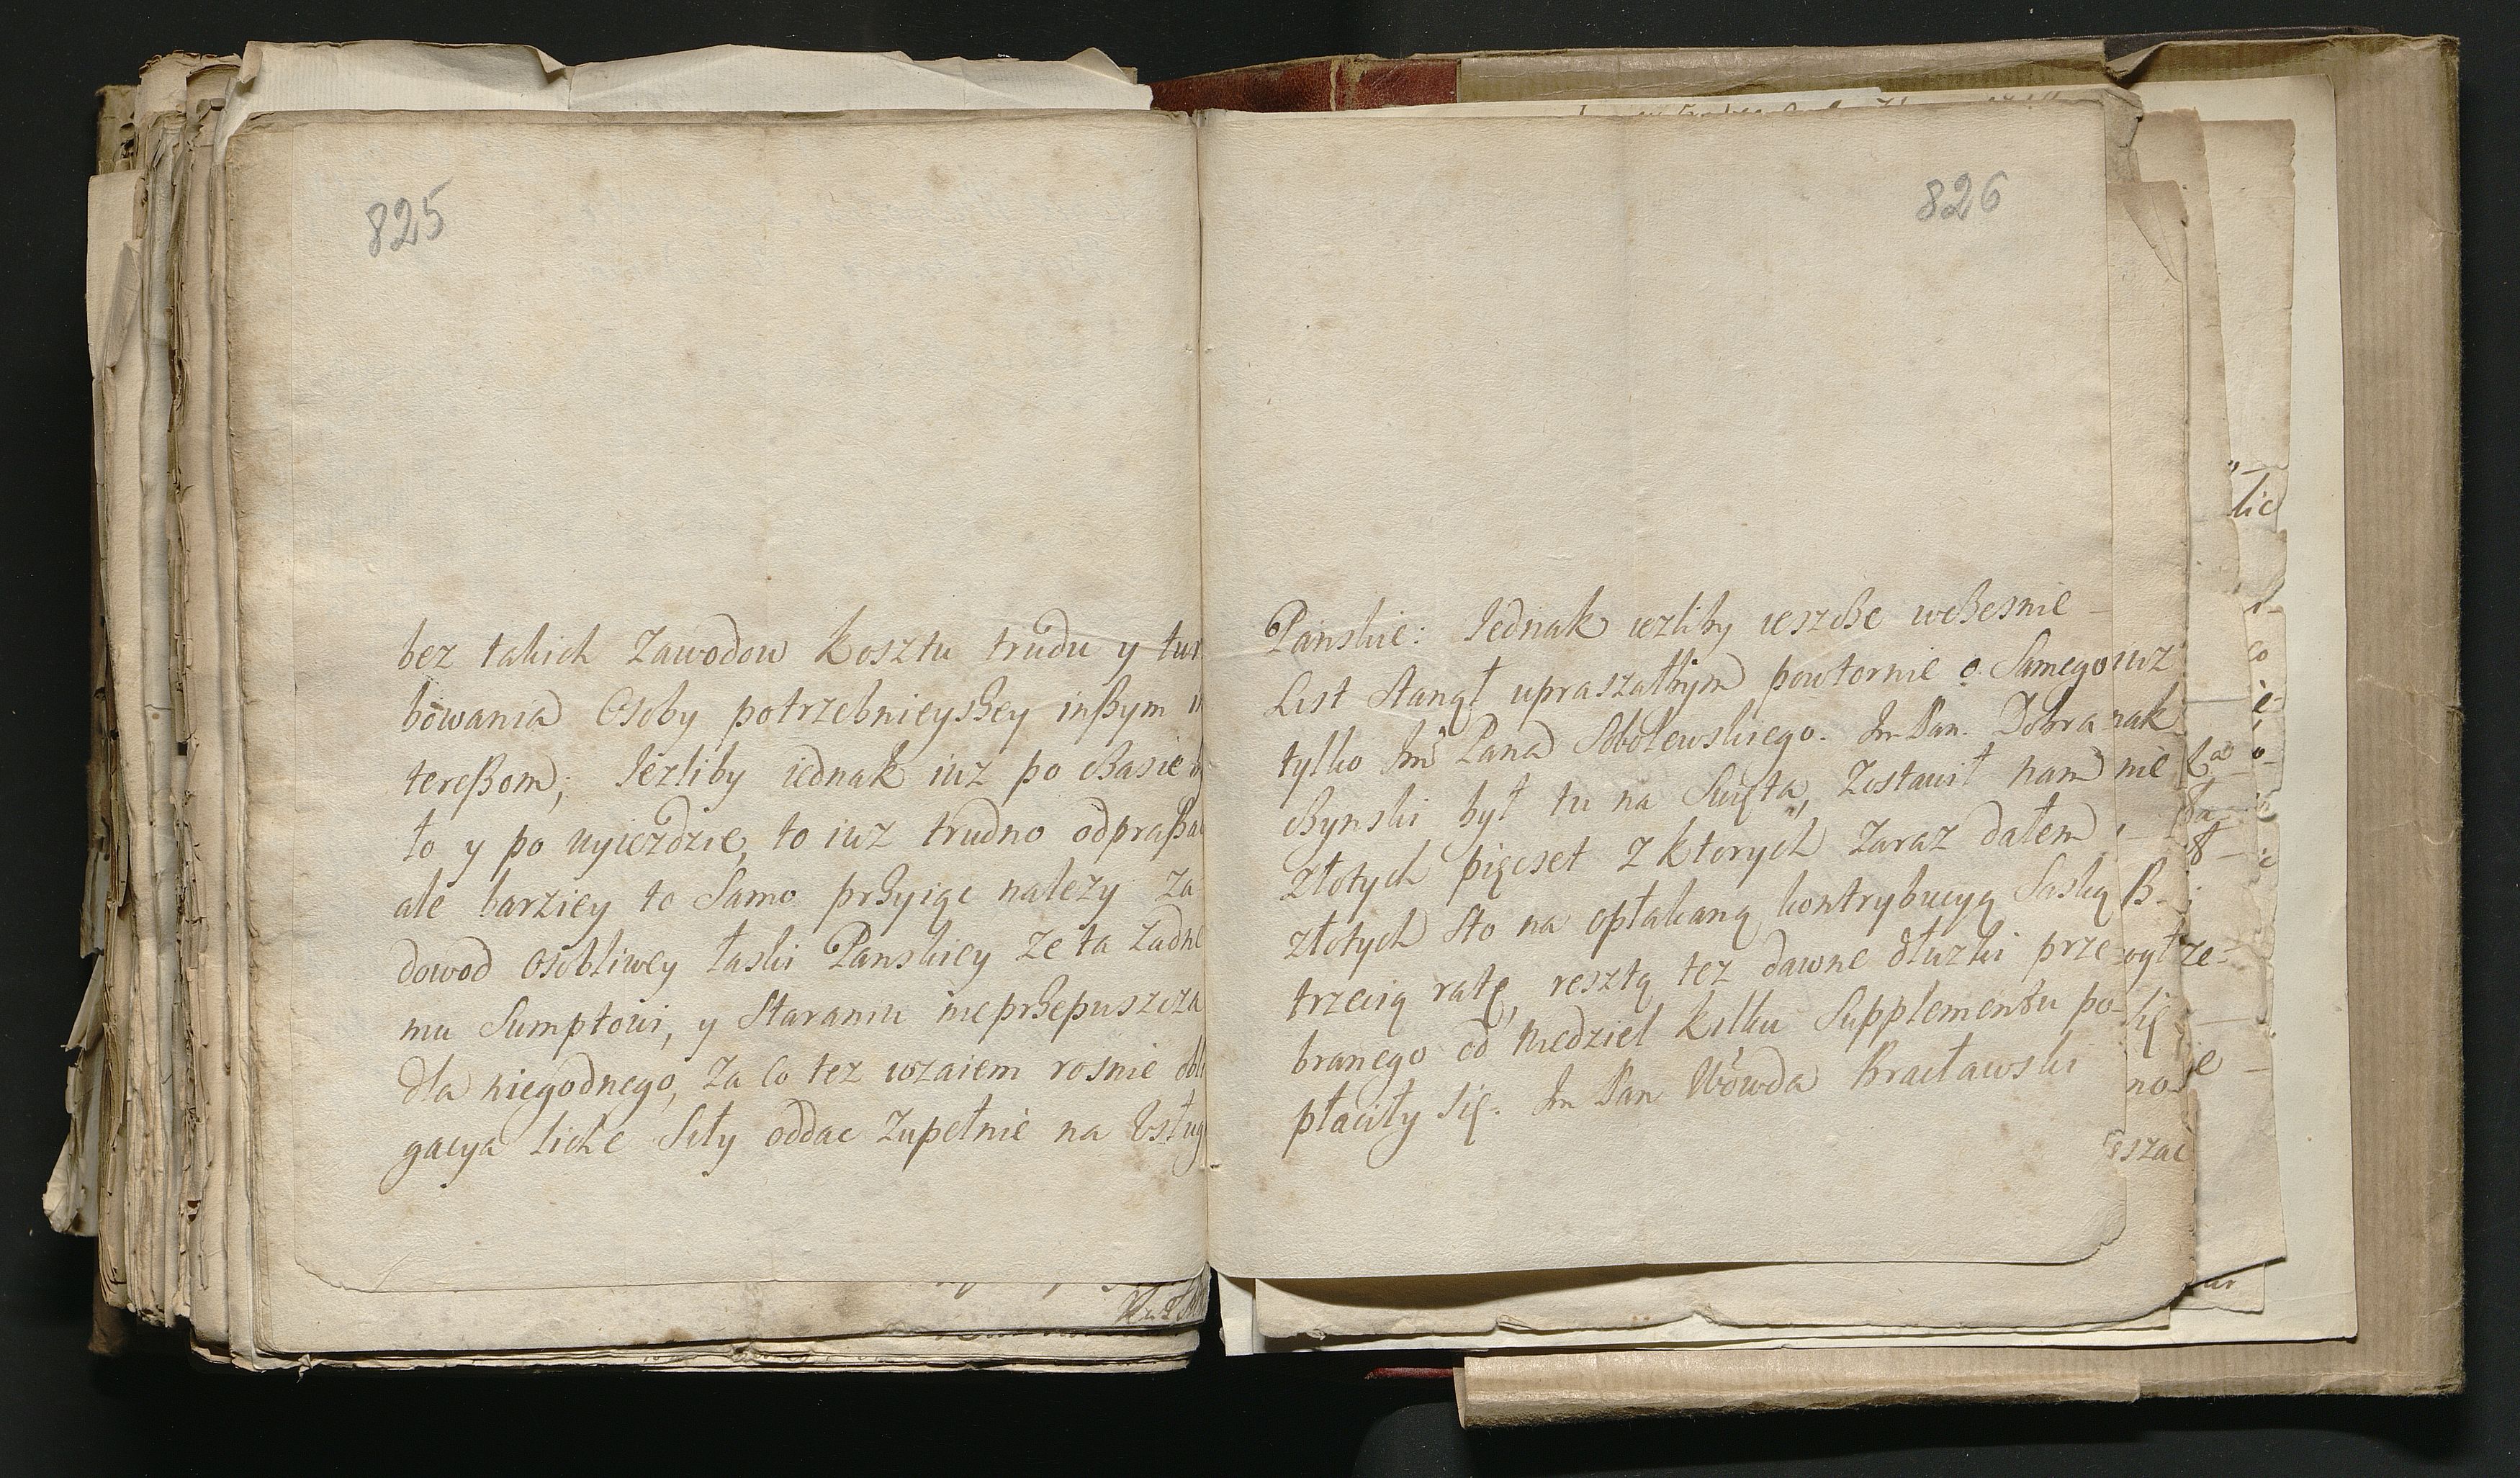 825
bez takich Zawodow kosztu trudu y tur
bowania Osoby potrzebnieyszey inßym in
tereßom; Jezliby iednak iuz po czasie
to y po uyiezdzie, to iuz trudno odpraßac
ale barziey to Samo przyiąc nalezy za
dowod osobliwey łaski Panskiey ze ta zadne
mu Sumptowi, y Staraniu nieprzepuszcza
dla niegodnego, za co tez wzaiem rosnie obli
gacya liche Siły oddac Zupełnie na Usług
826
Panskie: Jednak iezliby ieszcze wczesnie
List Stanął upraszałbym powtornie o Samego
tylko Jmć Pana Sobolewskiego. Jm Pan Dobra
czynski był tu na Swięta, Zostawił nam
złotych pięcset z ktorych Zaraz dałem
złotych sto na opłakaną kontrybucyą Saską
trzecią ratę, resztą tez dawne dłuzki prze
branego od Niedziel kilku Supplementu po
płaciły się. Jm Pan Wowda Bracławski
iuz
nak
nie
ß
się
no
szac
lic
co